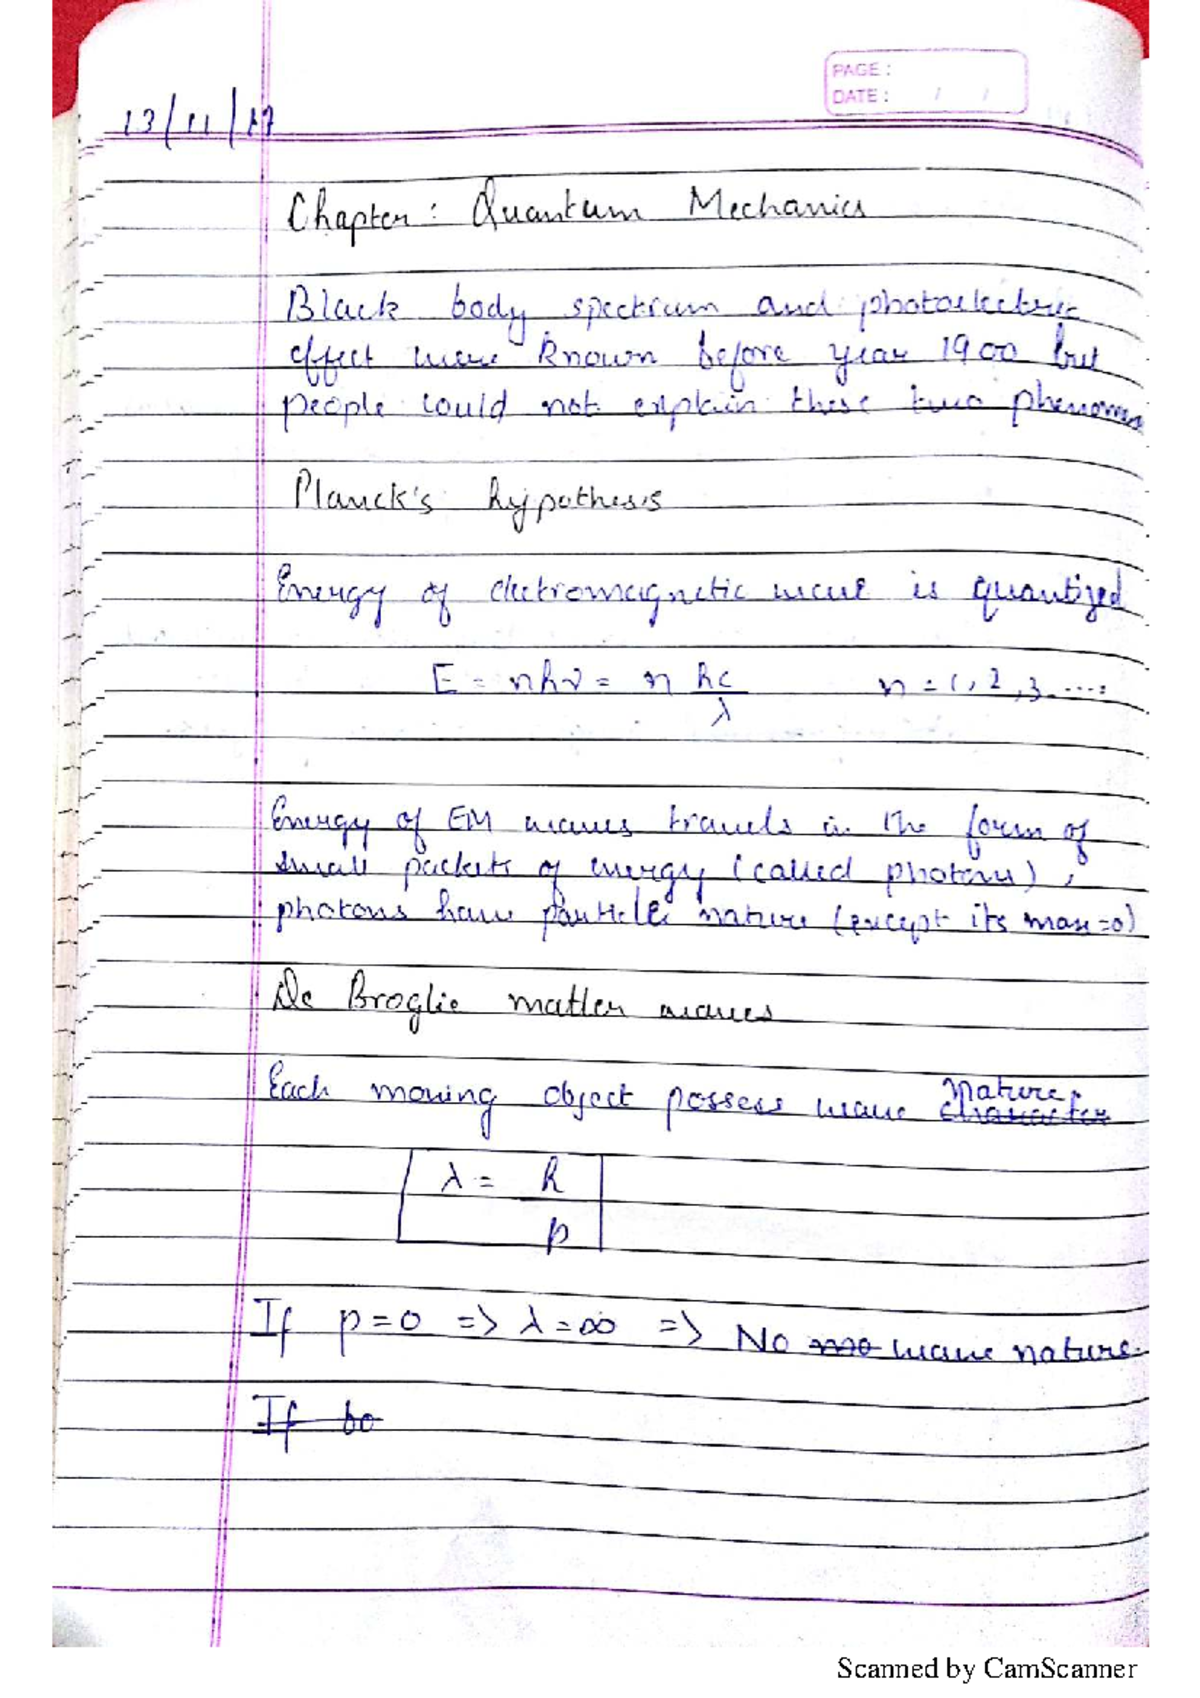 PAGE :
DATE : / /
13/11/17
Chapter: Quantum Mechanics
Black body spectrum and photoelectric
effect were known before year 1900 but
people could not explain these two phenoms
Planck's hypothesis
Energy of electromagnetic wave is quantized
E = nhν = n hc/λ n = 1, 2, 3....
Energy of EM waves travels in the form of
small packets of energy (called photons),
photons have particle nature (except its mass=0)
De Broglie matter waves
Each moving object possess wave nature. character
λ = h/p
If p = 0 => λ = ∞ => No wave nature.
If bo
Scanned by CamScanner